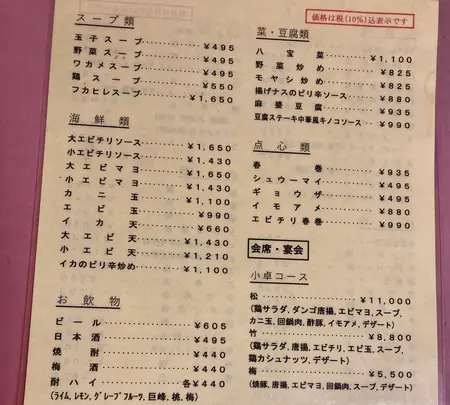 スープ類
玉子スープ ¥495
野菜スープ ¥495
ワカメスープ ¥495
鶏スープ ¥550
フカヒレスープ ¥1,650
海鮮類
大エビチリソース ¥1,650
小エビチリソース ¥1,430
大エビマヨ ¥1,650
小エビマヨ ¥1,430
カニ玉 ¥1,100
エビ玉 ¥990
イカ天 ¥660
大エビ天 ¥1,430
小エビ天 ¥1,210
イカのピリ辛炒め ¥1,100
お飲物
ビール ¥605
日本酒 ¥495
焼酎 ¥440
梅酒 ¥440
酎ハイ 各¥440
(ライム,レモン,グレープフルーツ,巨峰,桃,梅)
価格は税(10%)込表示です
菜・豆腐類
八宝菜 ¥1,100
野菜炒め ¥825
モヤシ炒め ¥825
揚げナスのピリ辛ソース ¥880
麻婆豆腐 ¥935
豆腐ステーキ中華風キノコソース ¥990
点心類
春巻 ¥935
シュウーマイ ¥495
ギョウザ ¥495
イモアメ ¥880
エビチリ春巻 ¥990
会席・宴会
小卓コース
松 ¥11,000
(鶏サラダ,ダンゴ唐揚,エビマヨ,スープ,
カニ玉,回鍋肉,酢豚,イモアメ,デザート)
竹 ¥8,800
(鶏サラダ,唐揚,エビチリ,エビ玉,スープ,
鶏カシュナッツ,デザート)
梅 ¥5,500
(焼豚,唐揚,エビマヨ,回鍋肉,スープ,デザート)